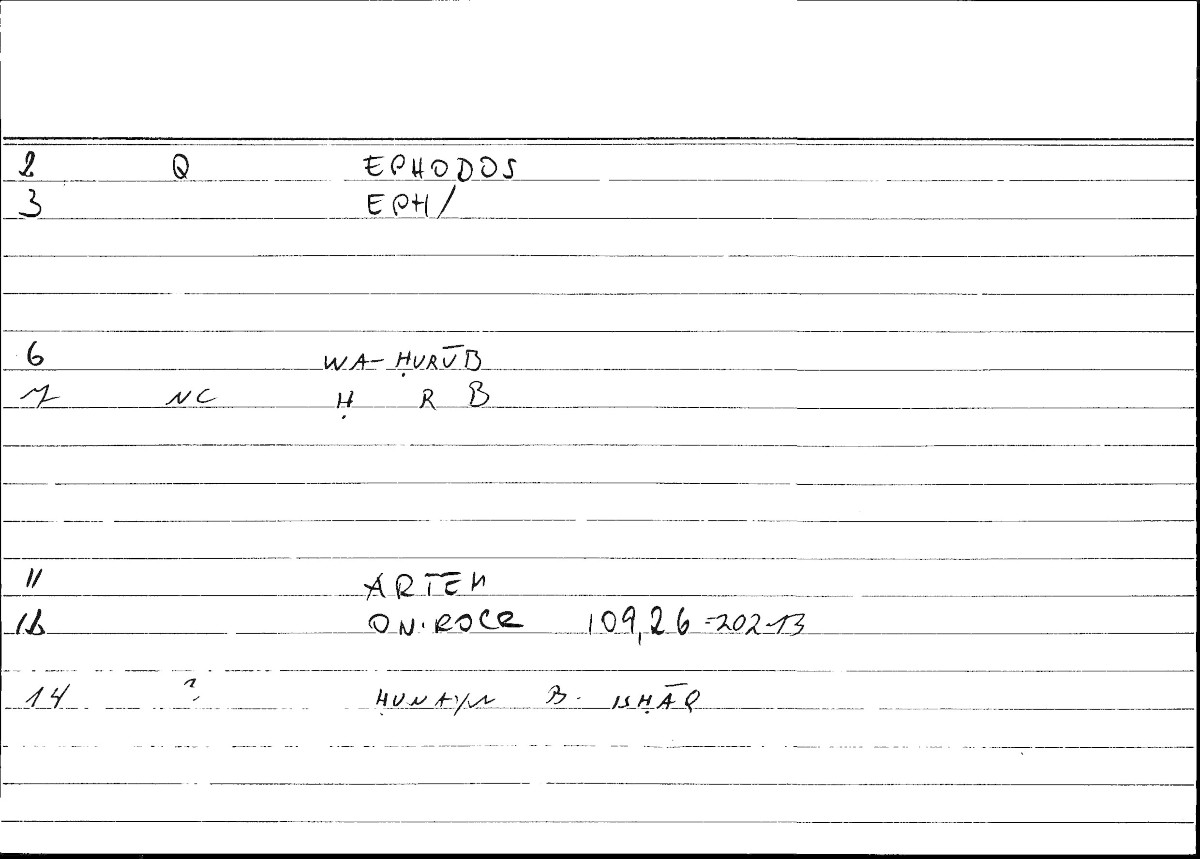 2 Q EPHODOS
3 EPH/
6 WA-ḤURŪB
7 NC Ḥ R B
11 ARTEM
12 ONIROCR 109,26-202-13
14 ? ḤUNAYN B. ISḤĀQ